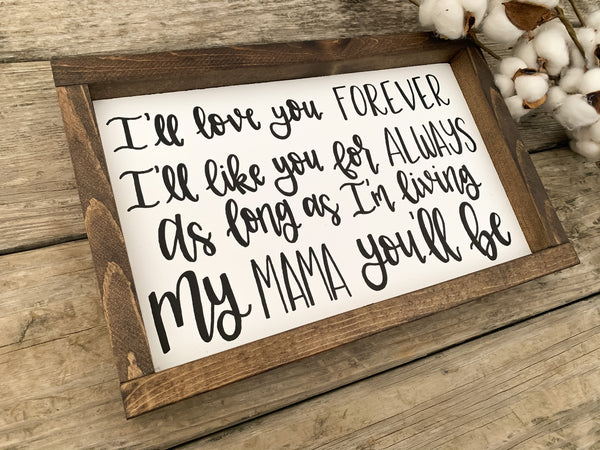 I'll love you FOREVER
I'll like you for ALWAYS
As long as I'm living
My MAMA you'll be